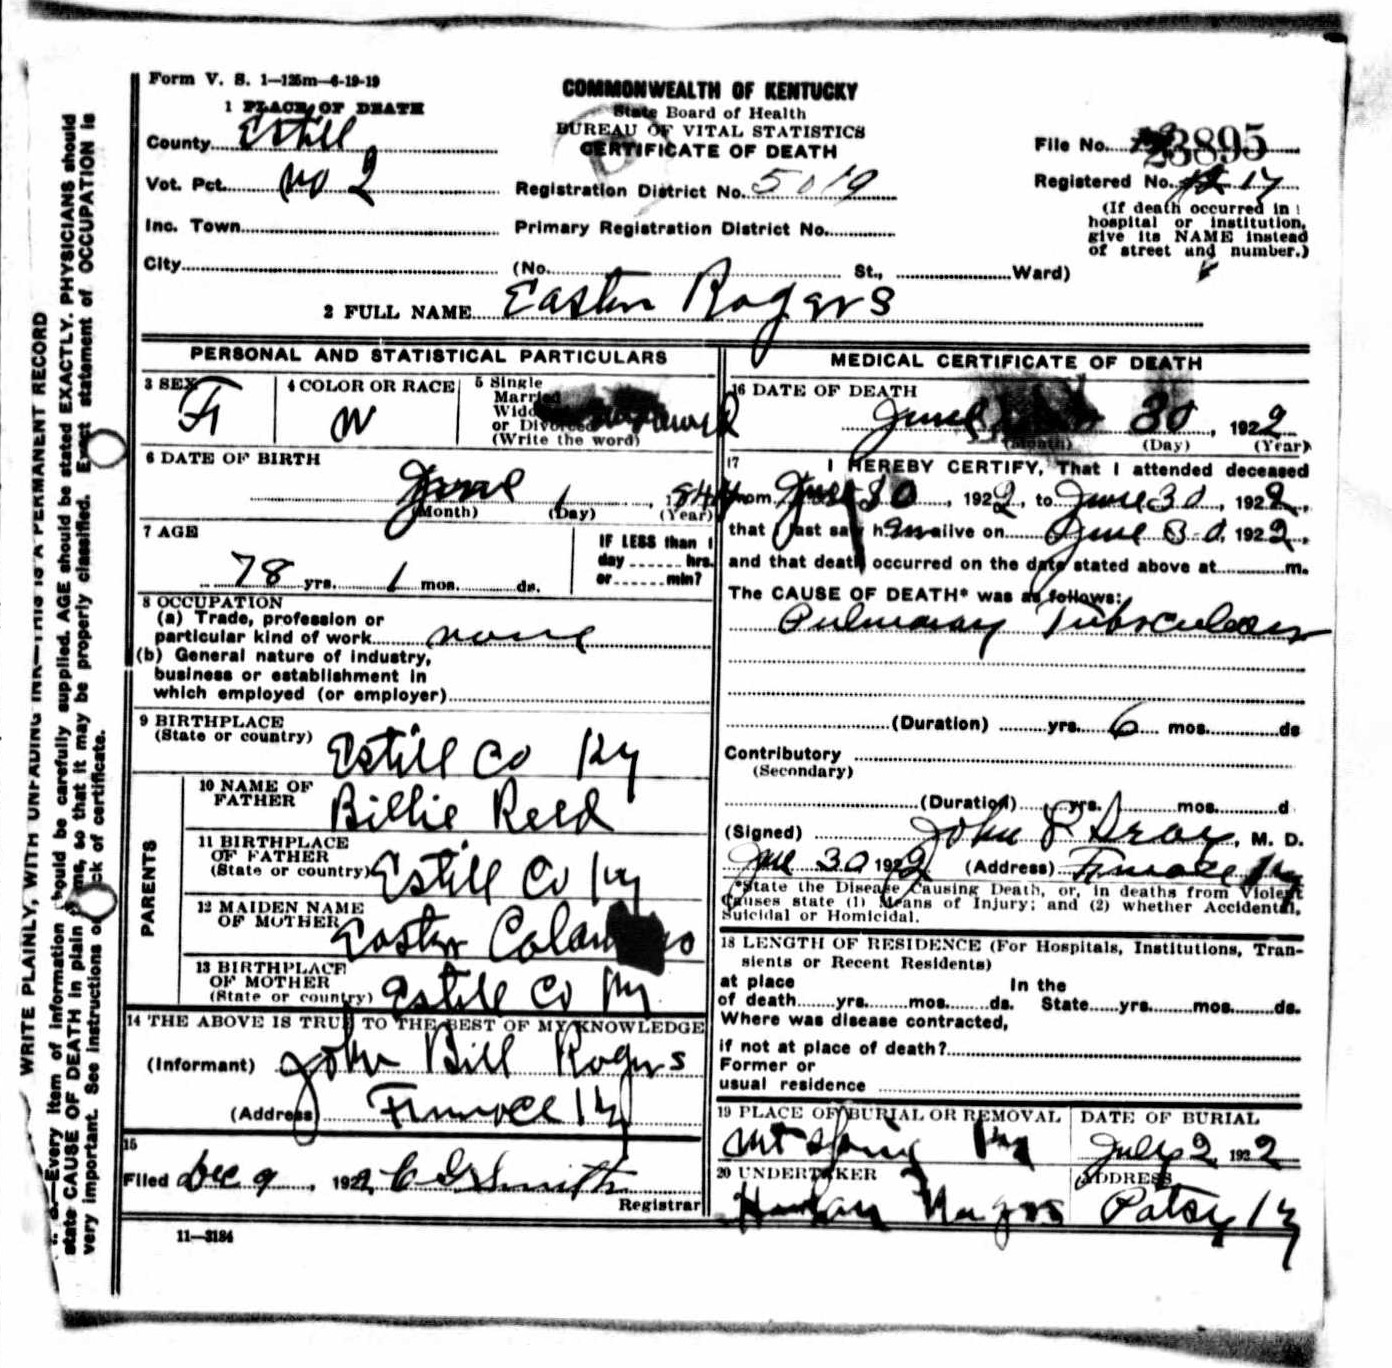 Form V. S. 1—125m—4-19-19
COMMONWEALTH OF KENTUCKY
State Board of Health
BUREAU OF VITAL STATISTICS
CERTIFICATE OF DEATH
1 PLACE OF DEATH
County Estill
Vot. Pct. No 2
Inc. Town
City
Registration District No. 5019
Primary Registration District No.
(No. St., Ward)
File No. 23895
Registered No. 17
(If death occurred in
hospital or institution,
give its NAME instead
of street and number.)
2 FULL NAME Easter Rogers
PERSONAL AND STATISTICAL PARTICULARS
3 SEX F
4 COLOR OR RACE W
5 Single
Married
Widowed
or Divorced
(Write the word)
6 DATE OF BIRTH
June 1, 1844
(Month) (Day) (Year)
7 AGE
78 yrs. 1 mos. ds.
IF LESS than 1
day hrs.
or min?
8 OCCUPATION
(a) Trade, profession or
particular kind of work none
(b) General nature of industry,
business or establishment in
which employed (or employer)
9 BIRTHPLACE
(State or country) Estill Co Ky
PARENTS
10 NAME OF
FATHER Billie Reed
11 BIRTHPLACE
OF FATHER
(State or country) Estill Co Ky
12 MAIDEN NAME
OF MOTHER Easter
13 BIRTHPLACE
OF MOTHER
(State or country) Estill Co Ky
14 THE ABOVE IS TRUE TO THE BEST OF MY KNOWLEDGE
(Informant) John Bill Rogers
(Address) Furnace Ky
15
Filed Dec 9, 1922 C G Smith
Registrar
11—3184
MEDICAL CERTIFICATE OF DEATH
16 DATE OF DEATH
June 30, 1922
(Month) (Day) (Year)
17 I HEREBY CERTIFY, That I attended deceased
from June 30, 1922, to June 30, 1922,
that I last saw h alive on June 30, 1922,
and that death occurred on the date stated above at m.
The CAUSE OF DEATH* was as follows:
Pulmonary Tuberculosis
(Duration) yrs. 6 mos. ds
Contributory
(Secondary)
(Duration) yrs. mos. d
(Signed) John, M. D.
June 30 1922 (Address) Furnace Ky
*State the Disease Causing Death, or, in deaths from Violent
Causes state (1) Means of Injury; and (2) whether Accidental,
Suicidal or Homicidal.
18 LENGTH OF RESIDENCE (For Hospitals, Institutions, Tran-
sients or Recent Residents)
at place In the
of death yrs. mos. ds. State yrs. mos. ds.
Where was disease contracted,
if not at place of death?
Former or
usual residence
19 PLACE OF BURIAL OR REMOVAL
Mt Spring Ky
DATE OF BURIAL
July 2 1922
20 UNDERTAKER
ADDRESS
Patsy Ky
WRITE PLAINLY, WITH UNFADING INK—THIS IS A PERMANENT RECORD
Every item of information should be carefully supplied. AGE should be stated EXACTLY. PHYSICIANS should
state CAUSE OF DEATH in plain terms, so that it may be properly classified. Exact statement of OCCUPATION is
very important. See instructions on back of certificate.